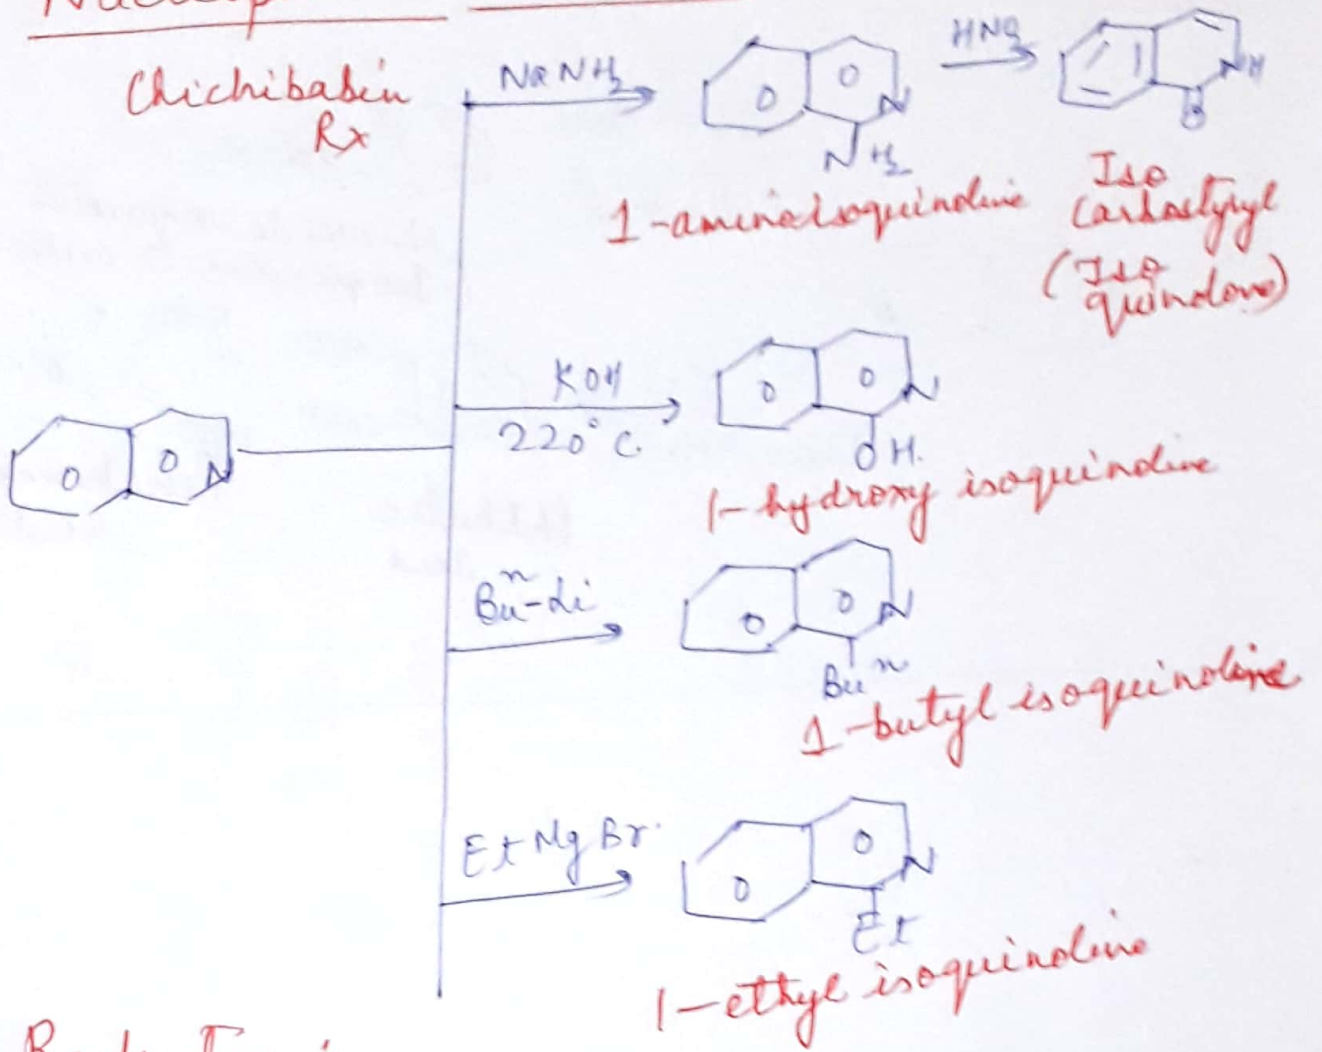 Chichibabin
Rx
NaNH2
N
NH2
HNO2
NH
O
1-aminoisoquinoline
Iso
Carbostyryl
(Iso
quinolone)
N
KOH
220°C.
N
OH.
1-hydroxy isoquinoline
Bu^n-Li
N
Bu^n
1-butyl isoquinoline
EtMgBr.
N
Et
1-ethyl isoquinoline